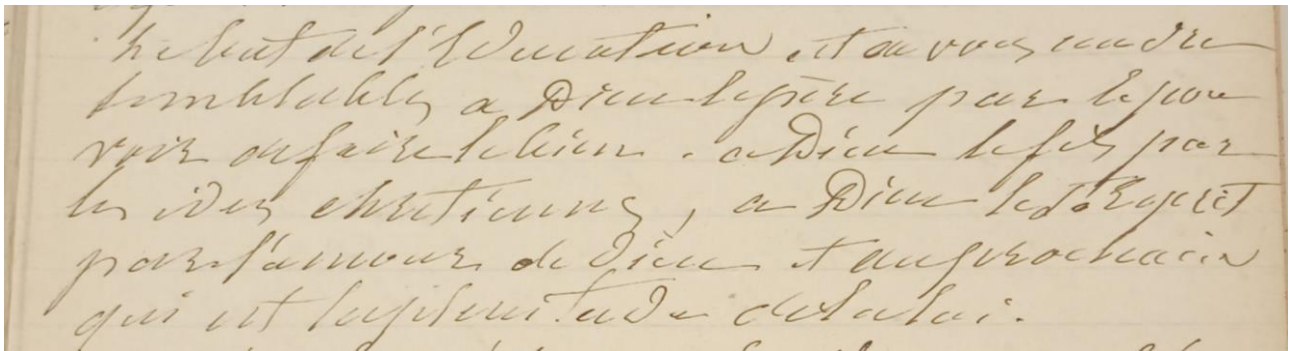 le but de l'Education est de vous rendre
semblables a Dieu le père par le pou
voir de faire le bien. a Dieu le fils par
les idées chretiennes, a Dieu le St Esprit
par l'amour de Dieu et du prochain
qui est la plénitude de la loi.